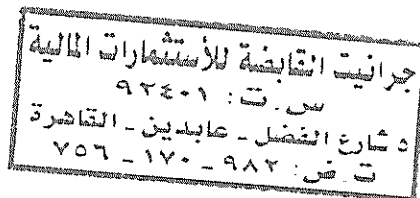 جرانيت القابضة للأستثمارات المالية
س.ت: ٩٢٤٠١
٥ شارع الفضل - عابدين - القاهرة
ت.ض: ٩٨٢ - ١٧٠ - ٧٥٦